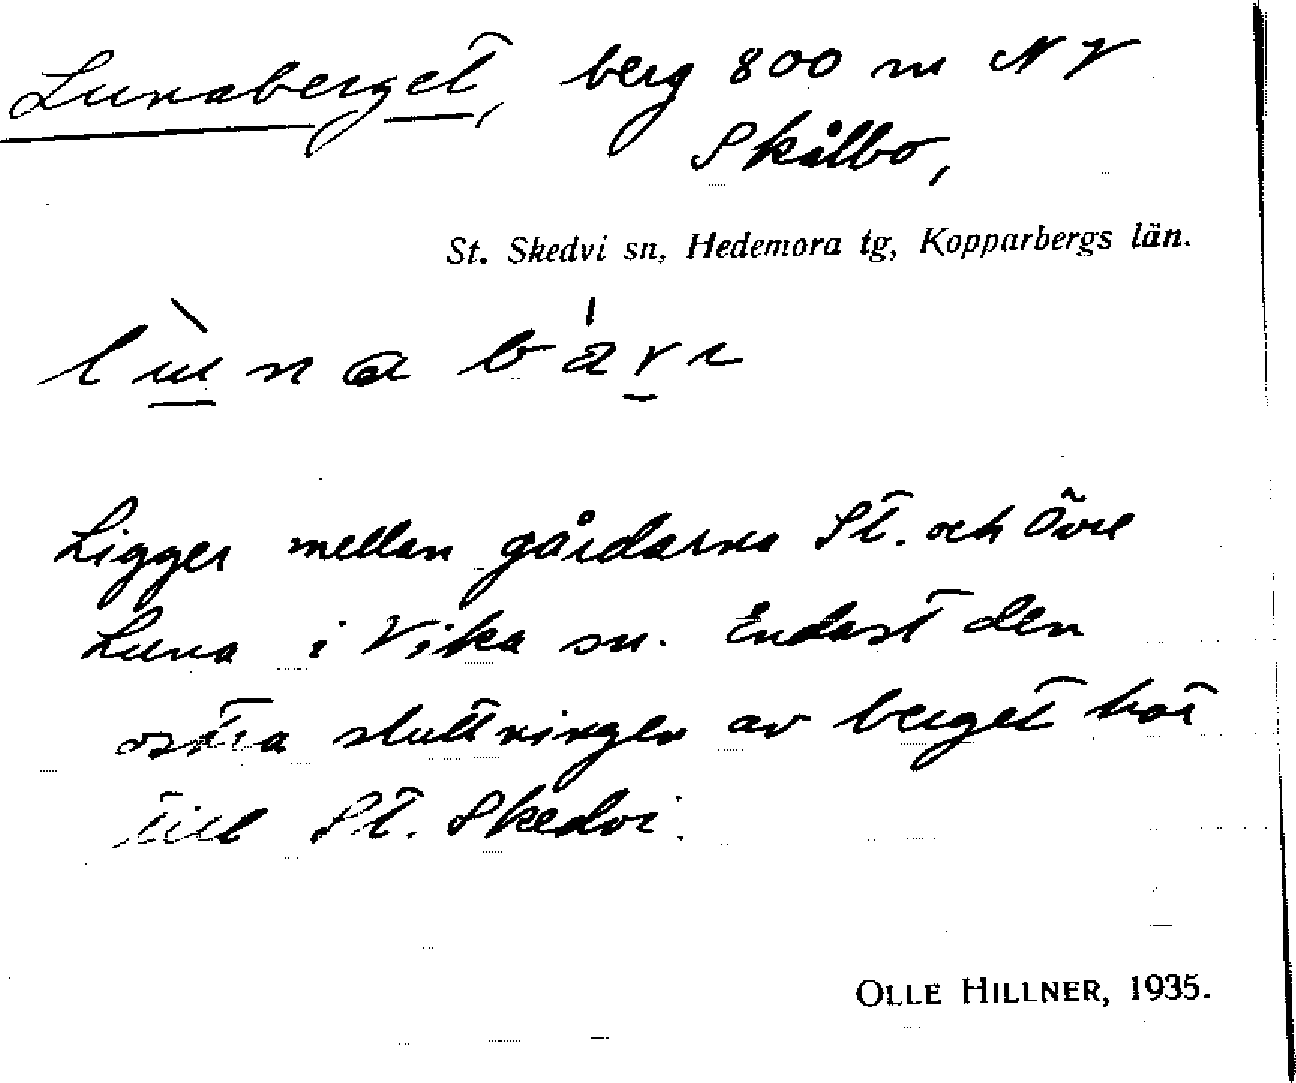 Lunaberget, berg 800 m NV
Skålbo,
St. Skedvi sn, Hedemora tg, Kopparbergs län.
Ligger mellan gårdarna St. och Övre
Luna i Vika sn. Endast den
östra sluttningen av berget hör
till St. Skedvi.
OLLE HILLNER, 1935.